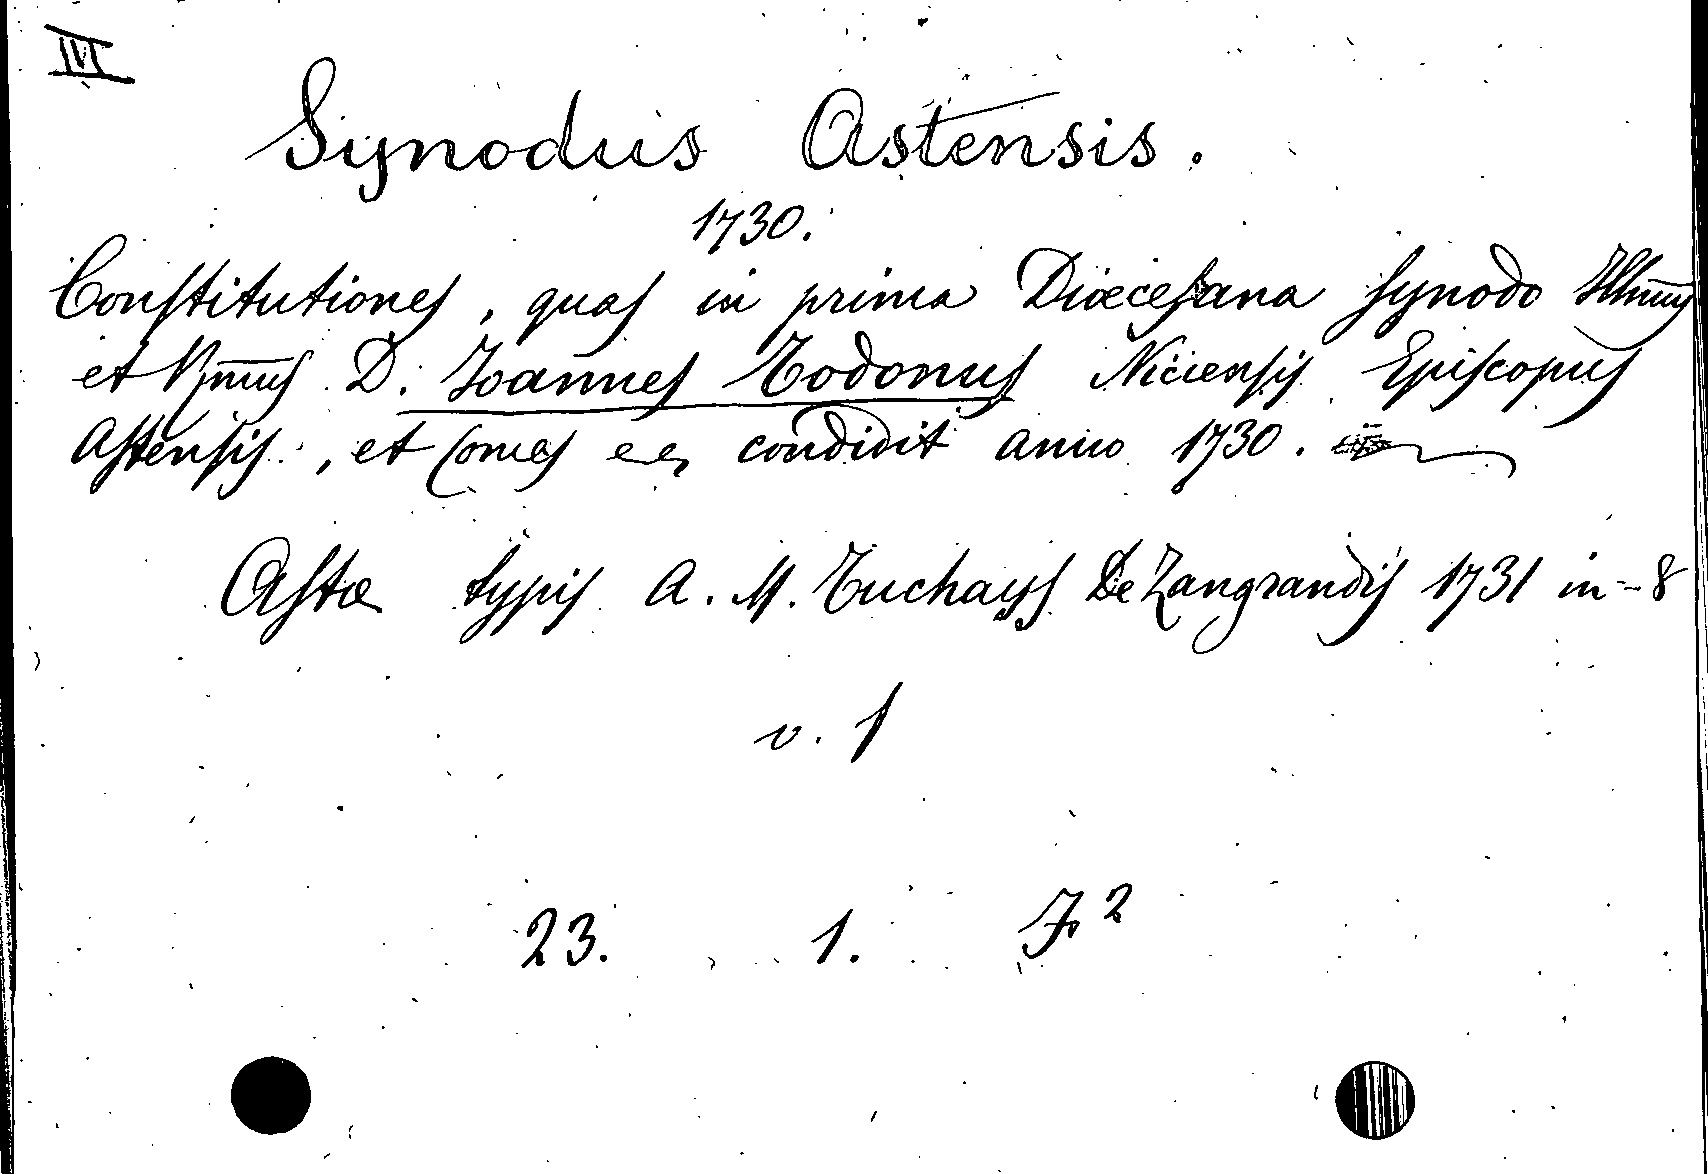 IVI
Synodus Astensis.
1730.
Constitutiones, quas in prima Diœcesana synodo Illmus
et Rmus D. Ioannes Todonus Niciensis Episcopus
Astensis, et Comes &c &c condidit anno 1730.
Astæ typis A. M. Tuchays De Zangrandis 1731 in-8
v. 1
23. 1. J²